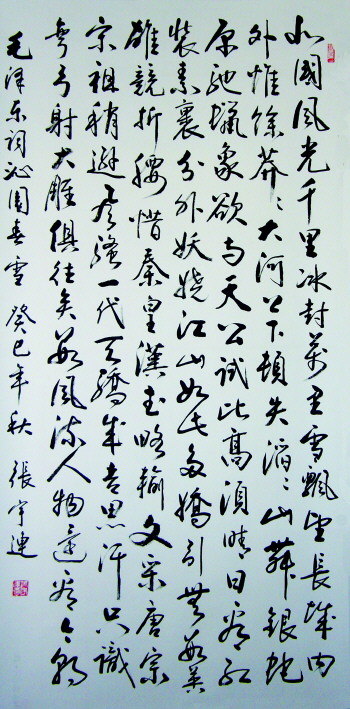 北國風光千里冰封萬里雪飄望長城内
外惟餘莽〻大河上下頓失滔〻山舞銀蛇
原馳蠟象欲与天公試比高須晴日看紅
裝素裹分外妖嬈江山如此多嬌引無數英
雄競折腰惜秦皇漢武略輸文采唐宗
宋祖稍遜風騷一代天驕成吉思汗只識
彎弓射大雕俱往矣數風流人物還看今朝
毛泽东詞沁園春雪 癸巳年秋 張宇連